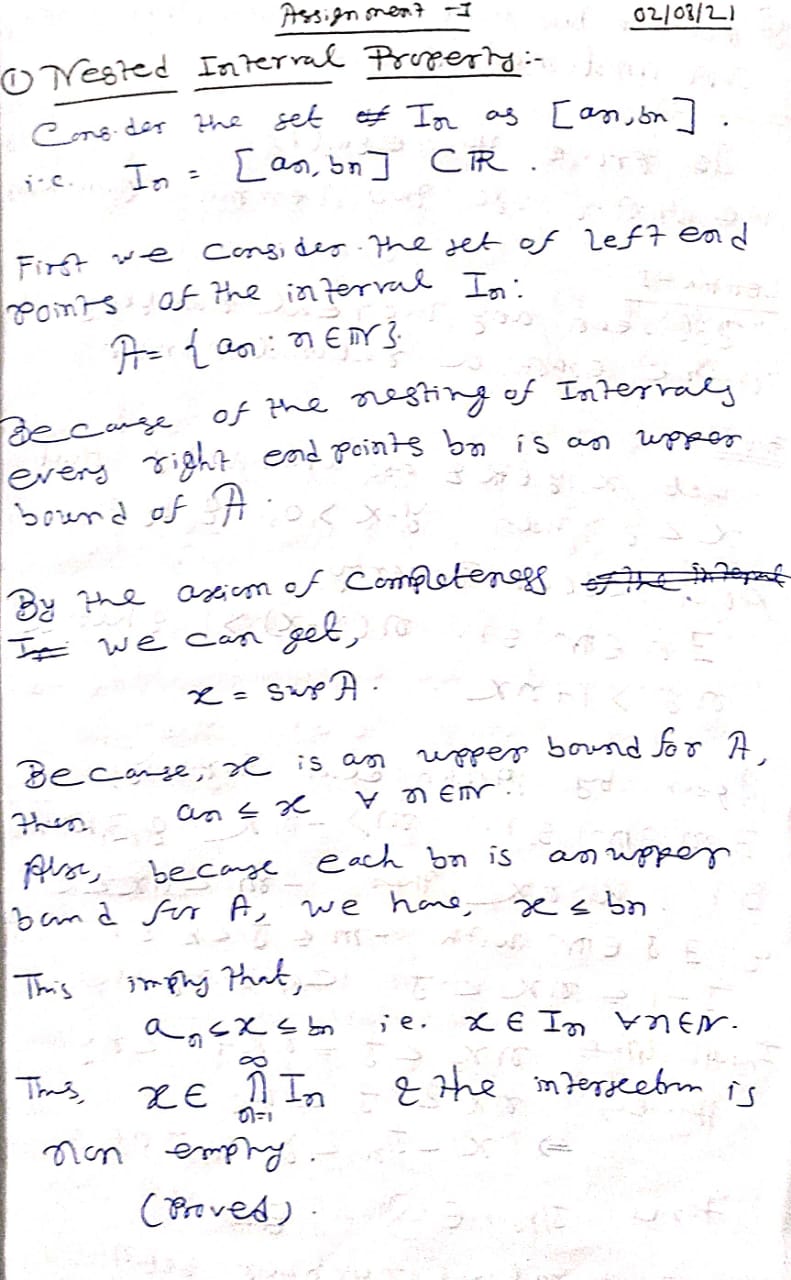 Assignment - I 02/08/21
① Nested Interval Property :-
Consider the set of In as [an, bn] .
i.e. In = [an, bn] ⊂ ℝ .
First we consider the set of left end
points of the interval In :
A = { an : n ∈ ℕ }.
Because of the nesting of Intervals
every right end points bn is an upper
bound of A .
By the axiom of Completeness of the interval
In we can get,
x = sup A .
Because, x is an upper bound for A,
then an ≤ x ∀ n ∈ ℕ .
Also, because each bn is an upper
bound for A, we have, x ≤ bn
This imply that,
an ≤ x ≤ bn i.e. x ∈ In ∀ n ∈ ℕ.
Thus, x ∈ ∞⋂n=1 In & the intersection is
non empty .
(Proved) .